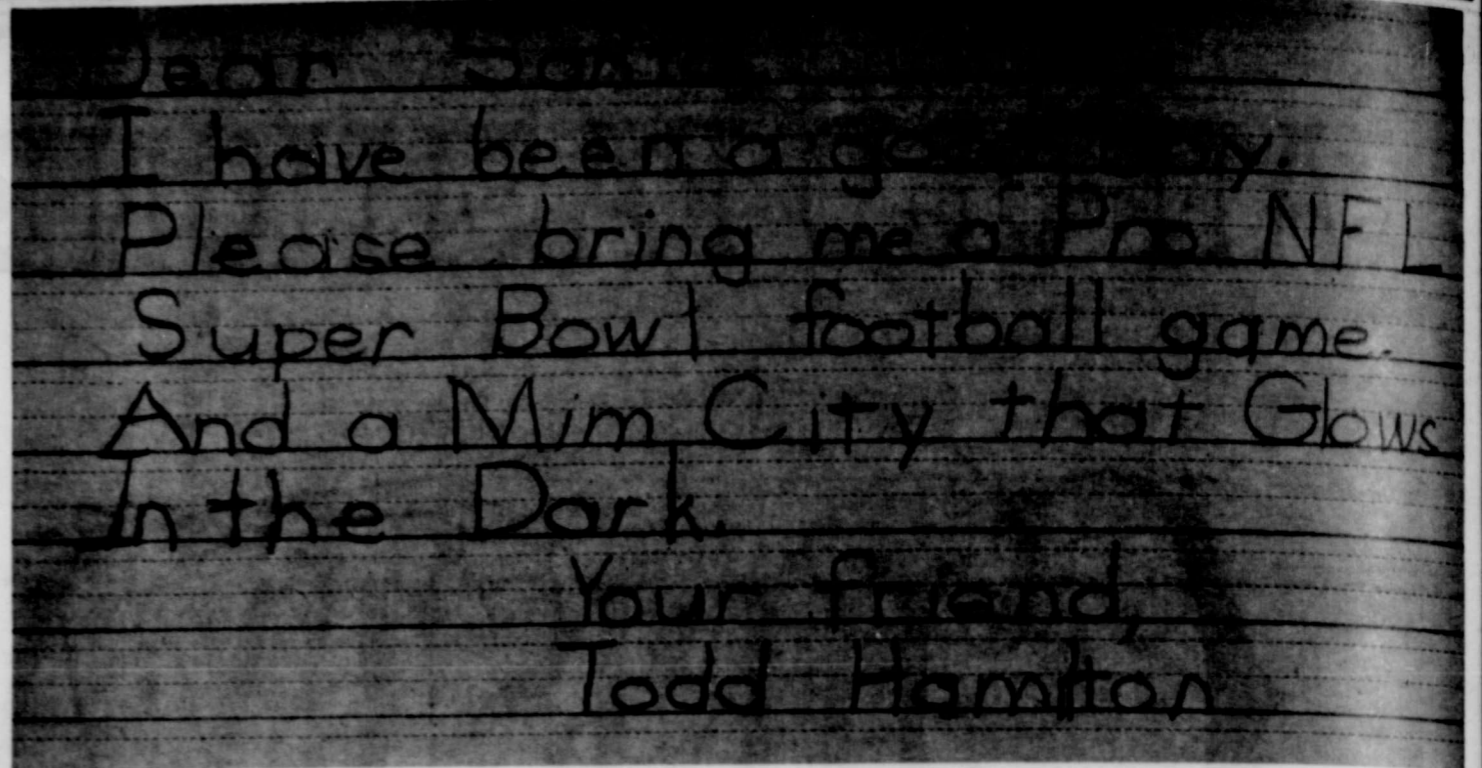 Dear Santa
I have been a good boy.
Please bring me a Pro NFL
Super Bowl football game.
And a Mim City that Glows
In the Dark.
Your friend,
Todd Hamilton